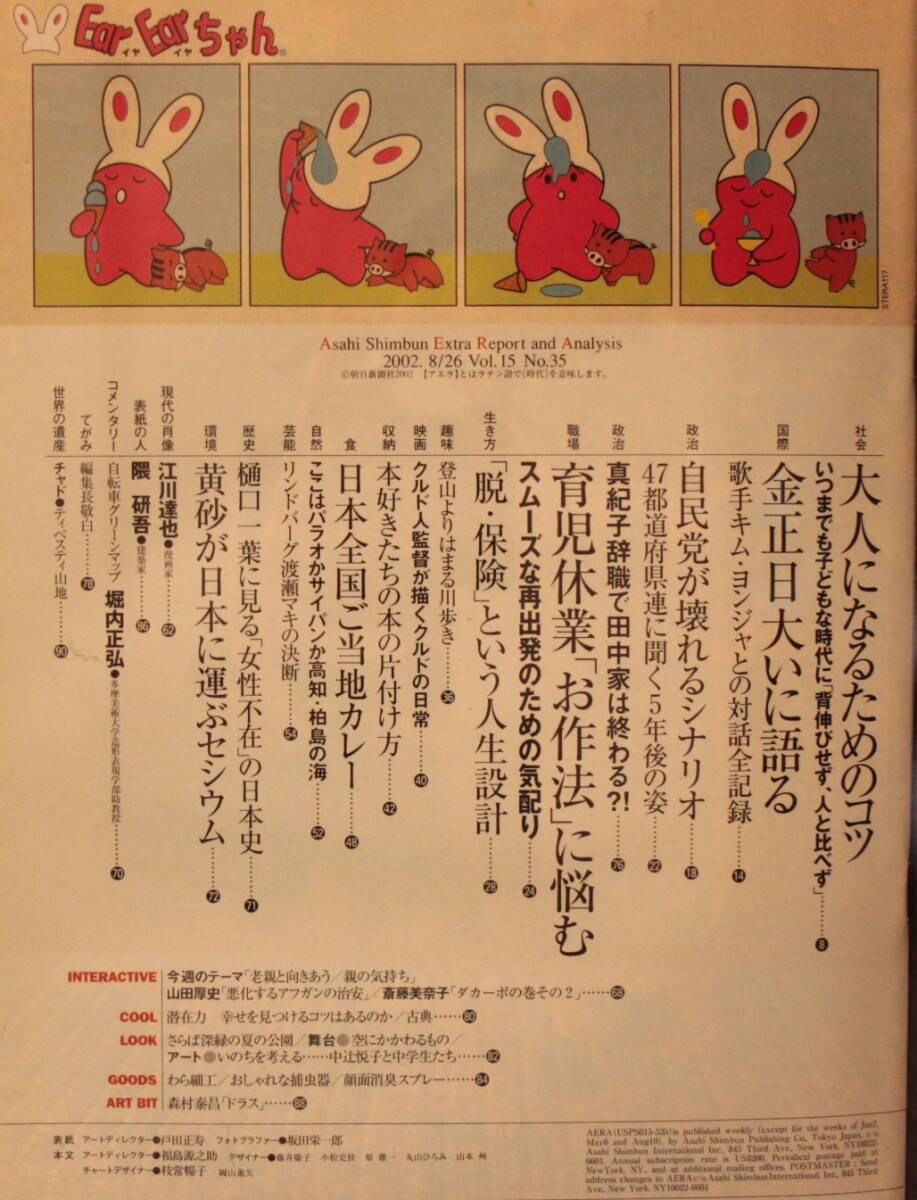 Ear Earちゃん®
イヤ イヤ
STERA117
Asahi Shimbun Extra Report and Analysis
2002. 8/26 Vol.15 No.35
©朝日新聞社2002 【アエラ】とはラテン語で[時代]を意味します。
社会
大人になるためのコツ
いつまでも子どもな時代に「背伸びせず、人と比べず」……8
国際
金正日大いに語る
歌手キム・ヨンジャとの対話全記録……14
政治
自民党が壊れるシナリオ……18
47都道府県連に聞く5年後の姿……22
政治
真紀子辞職で田中家は終わる?!……76
職場
育児休業「お作法」に悩む
スムーズな再出発のための気配り……24
生き方
「脱・保険」という人生設計……28
趣味
登山よりはまる川歩き……36
映画
クルド人監督が描くクルドの日常……40
収納
本好きたちの本の片付け方……42
食
日本全国ご当地カレー……48
自然
ここはパラオかサイパンか高知・柏島の海……52
芸能
リンドバーグ渡瀬マキの決断……54
歴史
樋口一葉に見る「女性不在」の日本史……71
環境
黄砂が日本に運ぶセシウム……72
現代の肖像
江川達也●漫画家……62
表紙の人
隈 研吾●建築家……86
コメンタリー
自転車グリーンマップ 堀内正弘●多摩美術大学造形表現学部助教授……70
てがみ
編集長敬白……78
世界の遺産
チャド●ティベスティ山地……90
INTERACTIVE 今週のテーマ「老親と向きあう/親の気持ち」
山田厚史「悪化するアフガンの治安」/斎藤美奈子「ダカーポの巻その2」……68
COOL 潜在力 幸せを見つけるコツはあるのか/古典……80
LOOK さらば深緑の夏の公園/舞台●空にかかわるもの/
アート●いのちを考える……中辻悦子と中学生たち……82
GOODS わら細工/おしゃれな捕虫器/顔面消臭スプレー……84
ART BIT 森村泰昌「ドラス」……88
表紙 アートディレクター●戸田正寿 フォトグラファー●坂田栄一郎
本文 アートディレクター●福島源之助 デザイナー●藤井慶子 小松史佳 原 雄一 丸山ひろみ 山本 州
チャートデザイナー●枝常暢子 岡山進矢
AERA (USPS015-525) is published weekly (except for the weeks of Jan7,
May6 and Aug19), by Asahi Shimbun Publishing Co., Tokyo Japan, c/o
Asahi Shimbun International Inc., 845 Third Ave., New York, NY10022-
6601. Annual subscription rate is US$290. Periodical postage paid at
New York, NY., and at additional mailing offices. POSTMASTER : Send
address changes to AERA c/o Asahi Shimbun International, Inc., 845 Third
Ave., New York, NY10022-6601